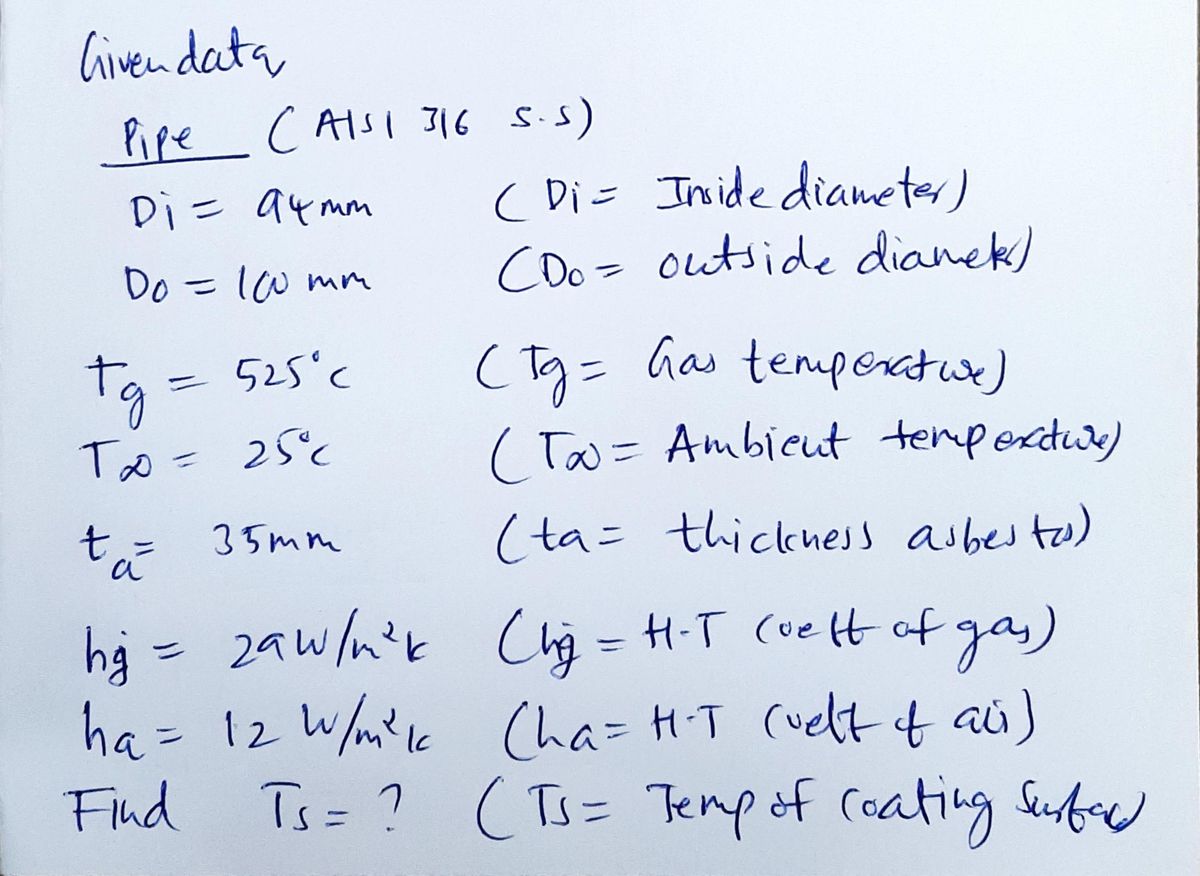 Given data
Pipe (AISI 316 S.S)
Di = 94mm (Di = Inside diameter)
Do = 100 mm (Do = outside diameter)
tg = 525°c (Tg = Gas temperature)
T∞ = 25°c (T∞ = Ambient temperature)
ta = 35mm (ta = thickness asbestos)
hg = 29W/m²k (hg = H.T coeff of gas)
ha = 12 W/m²k (ha = H.T coeff of air)
Find Ts = ? (Ts = Temp of coating surface